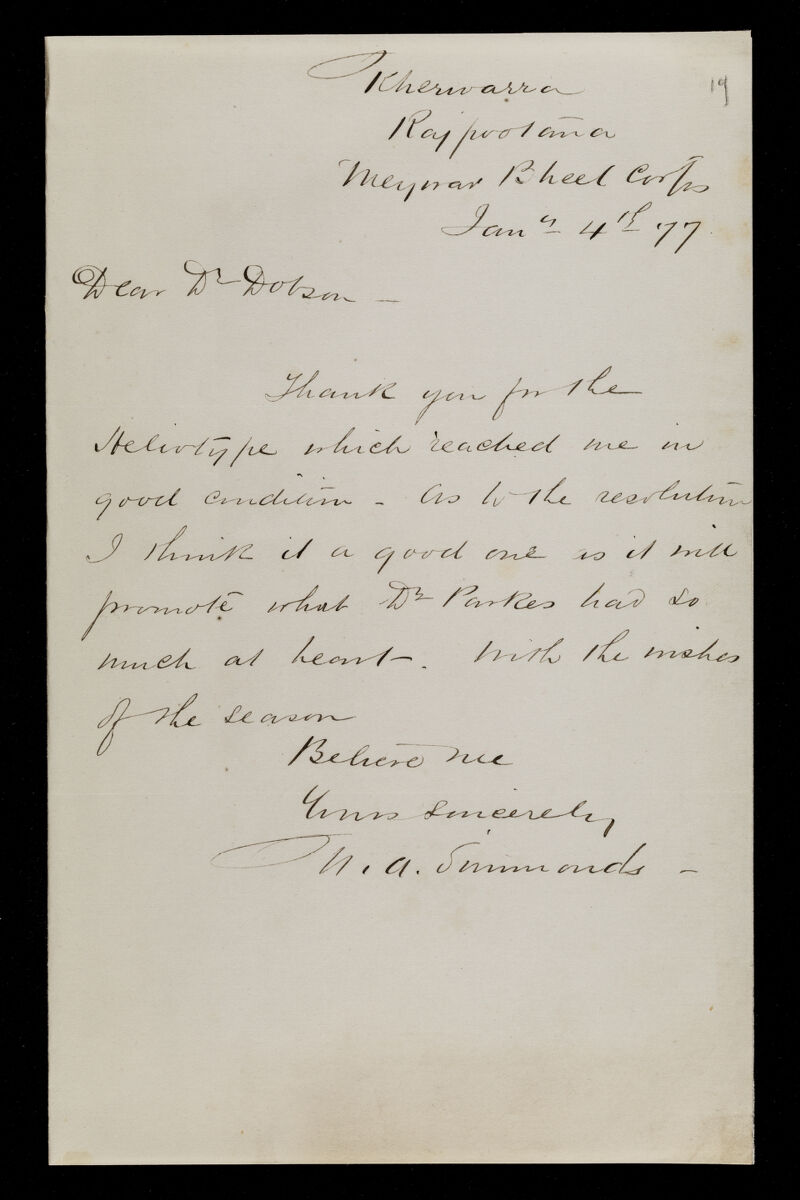 19
Kherwarra
Rajpootana
Meywar Bheel Corps
Jany 4th 77
Dear Dr Dobson –
Thank you for the
Heliotype which reached me in
good condition – As to the resolution
I think it a good one as it will
promote what Dr Parkes had so
much at heart –. With the wishes
of the season
Believe me
Yours sincerely
A. Simmonds –